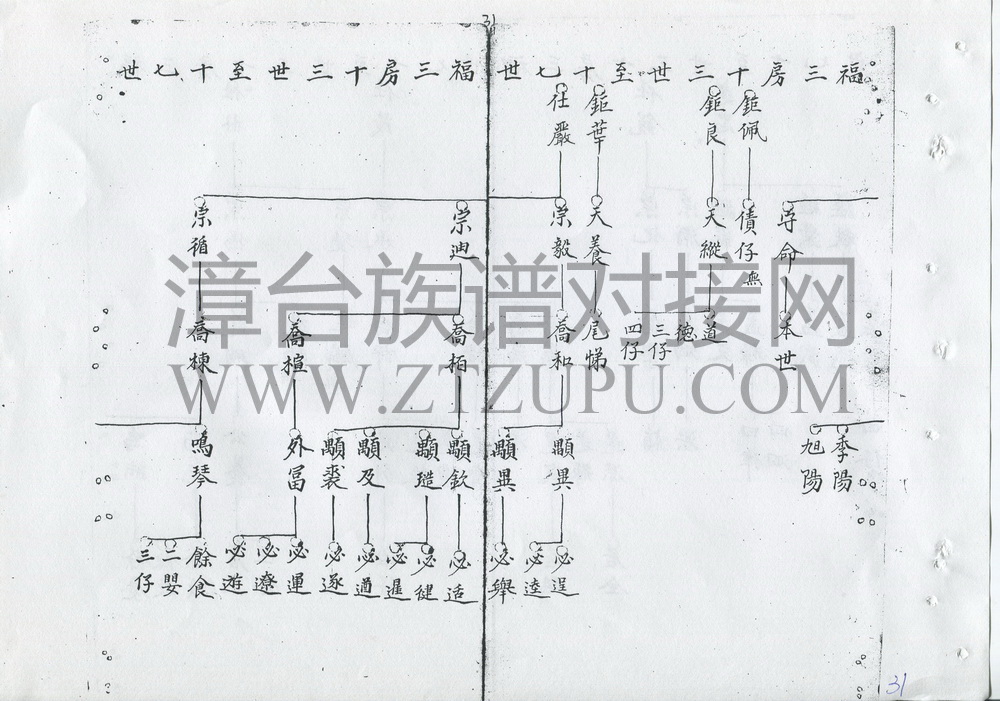 31
福三房十三世至十七世
鉅佩
鉅良
鉅葉
仕嚴
守命
債仔無
天縱
天養
崇毅
本世
道
德
三仔
四仔
尾悌
喬和
季陽
旭陽
顯異
必逞
必逵
必舉
福三房十三世至十七世
崇迪
崇循
喬柏
喬楦
喬棟
顯欽
顯造
顯及
顯裘
外冨
鳴琴
必适
必健
必暹
必遒
必逐
必運
必遼
必遊
餘食
二嬰
三仔
漳台族谱对接网
WWW.ZTZUPU.COM
31